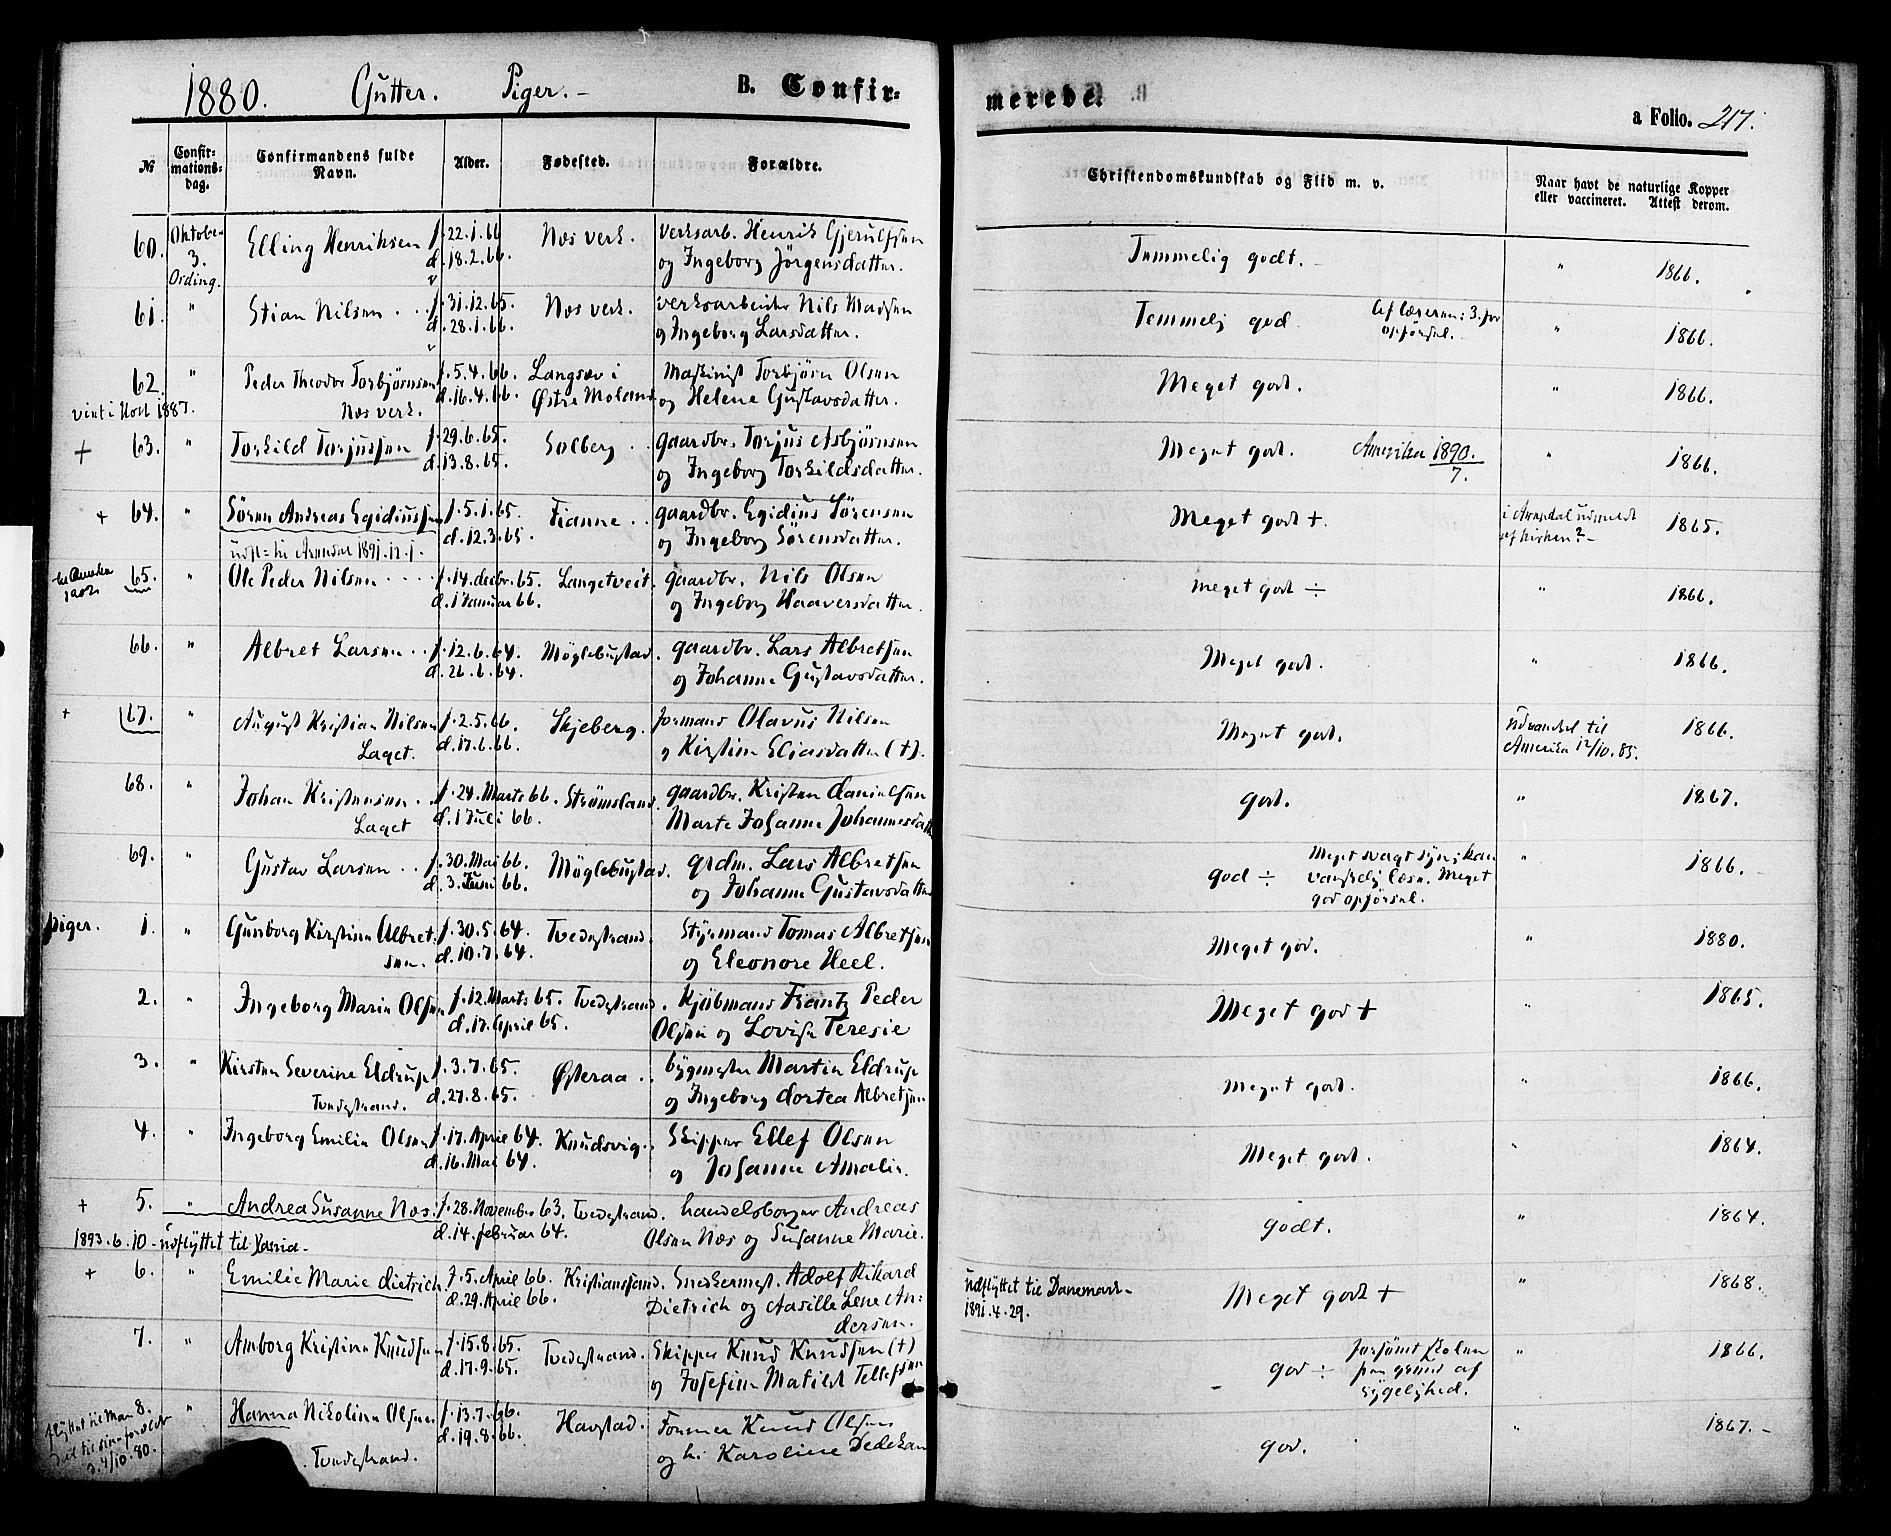 1880. Gutter. Piger. - B. Confir-
merede.
a Folio. 217.
№ Confir-mations-dag. Confirmandens fulde Navn. Alder. Fødested. Forældre. Christendomskundskab og Flid m. v. Naar havt de naturlige Kopper eller vaccineret. Attest derom.
60. Oktober Elling Henriksen f. 22.1.66 Næs verk. verksarb. Henrik Gjerulfsen Temmelig godt. " 1866.
3. Ording. d. 18.2.66. og Ingeborg Jörgensdatter.
61. " Stian Nilsen f. 31.12.65. Næs verk. verksarbeider Nils Madsen Temmelig god. Af læreren: 3. for " 1866.
d. 28.1.66. og Ingeborg Larsdatter. opförsel.
62. " Peder Theodor Torbjørnsen f. 5.4.66. Langsæv i Maskinist Torbjörn Olsen Meget god. " 1866.
Næs verk. d. 16.4.66. Østre Moland og Helene Gustavsdatter.
+ 63. " Torkild Torjussen f. 29.6.65. Solberg gaardbr. Torjus Asbjørnsen Meget god. Amerika 1890. " 1866.
d. 13.8.65. og Ingeborg Torkildsdatter. 7.
+ 64. " Sören Andreas Egidiussen f. 5.1.65. Fianne gaardbr. Egidius Sörensen Meget god +. i Arendal udmeldt 1865.
1891.12.1. d. 12.3.65. og Ingeborg Sørensdatter. af kirken? -
65. " Ole Peder Nilsen f. 14. decbr. 65. Langetveit. gaardbr. Nils Olsen meget god ÷ " 1866.
d. 1 Januar 66. og Ingeborg Haaversdatter.
66. " Albret Larsen f. 12.6.64. Möglebustad. gaardbr. Lars Albretsen Meget god. " 1866.
d. 26.6.64. og Johanne Gustavsdatter.
+ 67. " August Kristian Nilsen f. 2.5.66. Skjeberg. formand Olavus Nilsen Meget god. Udvandret til 1866.
Laget. d. 17.6.66. og Kirstine Eliasdatter (+). Amerika 12/10.85.
68. " Johan Kristensen f. 24. Marts 66. Strömsland. gaardbr. Kristen Danielsen god. " 1867.
Laget d. 1 Juli 66. Marte Johanne Johannesdatter
69. " Gustav Larsen f. 30. Mai 66. Möglebustad. grdm. Lars Albretsen god ÷ Meget svagt syn; kan " 1866.
d. 3. Juni 66. og Johanne Gustavsdatter vanskelig læse. Meget
god opførsel.
Piger. 1. " Gunborg Kirstine Albret- f. 30.5.64. Tvedestrand. Styrmand Tomas Albretsen Meget god. " 1880.
sen. d. 10.7.64. og Eleonore Heel.
2. " Ingeborg Marie Olsen f. 12. Marts 65. Tvedestrand. Kjöbmand Frantz Peder Meget god + " 1865.
d. 17. April 65. Olsen og Lovise Teresie
3. " Kirsten Severine Eldrup f. 3.7.65. Østeraa bygmester Martin Eldrup Meget god. " 1866.
Tvedestrand. d. 27.8.65. og Ingeborg Dortea Albretsen
4. " Ingeborg Emilie Olsen f. 17. April 64. Knudsvig. Skipper Ellef Olsen Meget god. " 1864.
d. 16. Mai 64. og Johanne Amalie.
+ 5. " Andrea Susanne Næs f. 28. November 63. Tvedestrand. handelsborger Andreas godt. " 1864.
1893.6.10 - udflyttet til d. 14. februar 64. Olsen Næs og Susanne Marie.
+ 6. " Emilie Marie Dietrich f. 5. April 66. Kristianssand. Snedkermest. Adolf Rikard Udflyttet til Danemark- Meget god + " 1868.
d. 29. April 66. Dietrich og Aasille Lene An- 1891.4.29.
dersen.
7. " Amborg Kristine Knudsen f. 15.8.65. Tvedestrand. Skipper Knud Knudsen (+) god ÷ forsömt skolen " 1866.
d. 17.9.65. og Josefine Matilde Tellefsen paa grund af
sygelighed.
8. " Hanna Nikoline Olsen f. 13.7.66. Havstad. Former Knud Olsen god. " 1867. -
Tvedestrand. d. 19.8.66. og h. Karoline Dedekam
3. 4/10.80.